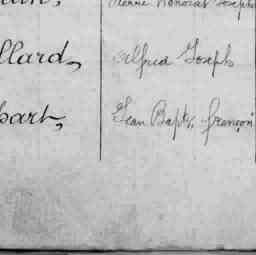 Pierre Honorat Joseph
llard, Alfred Joseph
bart, Jean Bapt. françois